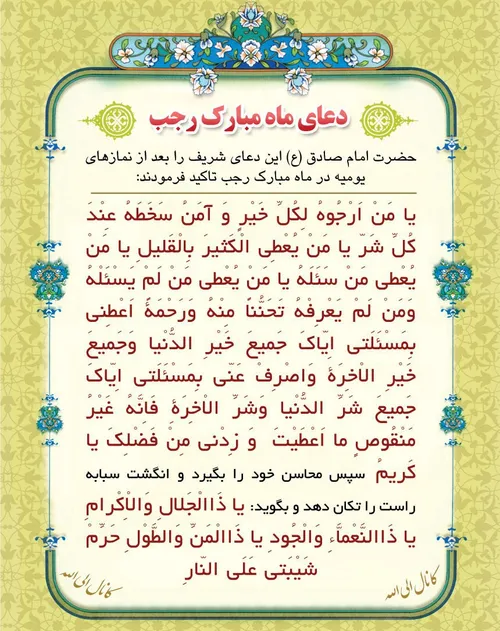 دعای ماه مبارک رجب
حضرت امام صادق (ع) این دعای شریف را بعد از نمازهای
یومیه در ماه مبارک رجب تاکید فرمودند:
یا مَنْ اَرْجوهُ لِکُلِّ خَیْرٍ وَ آمَنُ سَخَطَهُ عِنْدَ
کُلِّ شَرٍّ یا مَنْ یُعْطِی الْکَثیرَ بِالْقَلیلِ یا مَنْ
یُعْطی مَنْ سَئَلَهُ یا مَنْ یُعْطی مَنْ لَمْ یَسْئَلْهُ
وَمَنْ لَمْ یَعْرِفْهُ تَحَنُّناً مِنْهُ وَرَحْمَةً اَعْطِنی
بِمَسْئَلَتی اِیّاکَ جَمیعَ خَیْرِ الدُّنْیا وَجَمیعَ
خَیْرِ الْاخِرَةِ وَاصْرِفْ عَنّی بِمَسْئَلَتی اِیّاکَ
جَمیعَ شَرِّ الدُّنْیا وَشَرِّ الْاخِرَةِ فَاِنَّهُ غَیْرُ
مَنْقُوصٍ ما اَعْطَیْتَ وَ زِدْنی مِنْ فَضْلِکَ یا
کَریمُ سپس محاسن خود را بگیرد و انگشت سبابه
راست را تکان دهد و بگوید: یا ذَاالْجَلالِ وَالْاِکْرامِ
یا ذَاالنَّعْماَّءِ وَالْجُودِ یا ذَاالْمَنِّ وَالطَّوْلِ حَرِّمْ
شَیْبَتی عَلَی النّارِ
کانال الی الله
کانال الی الله